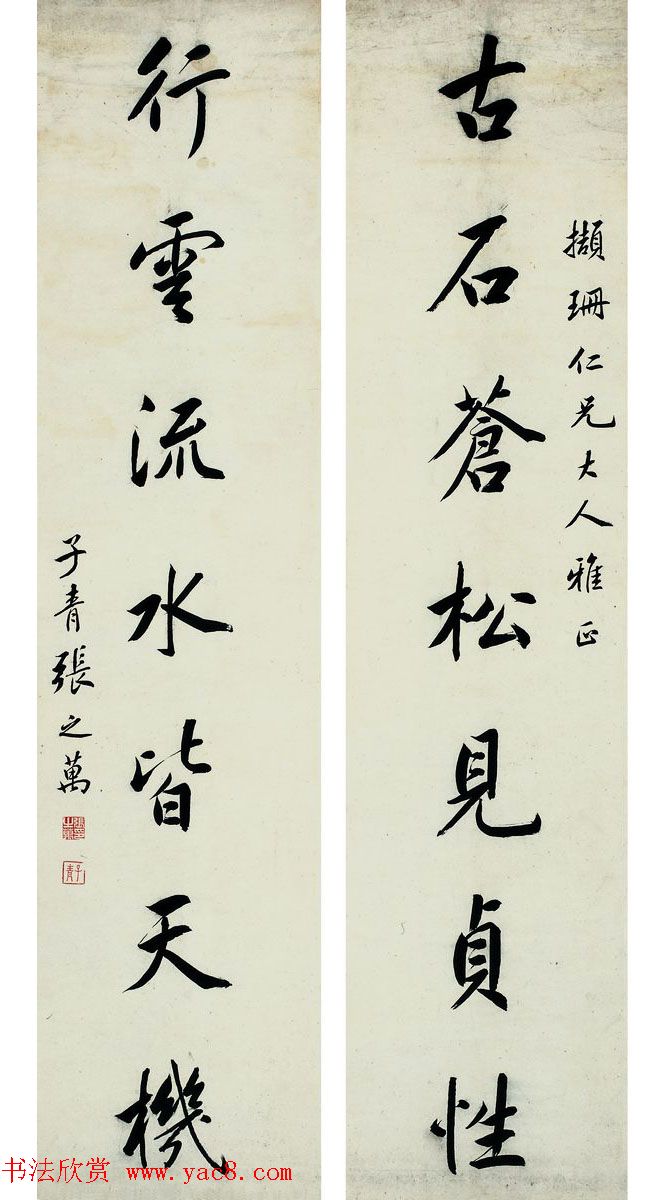 擷珊仁兄大人雅正
古石蒼松見貞性
行雲流水皆天機
子青張之萬
子青
书法欣赏 www.yac8.com